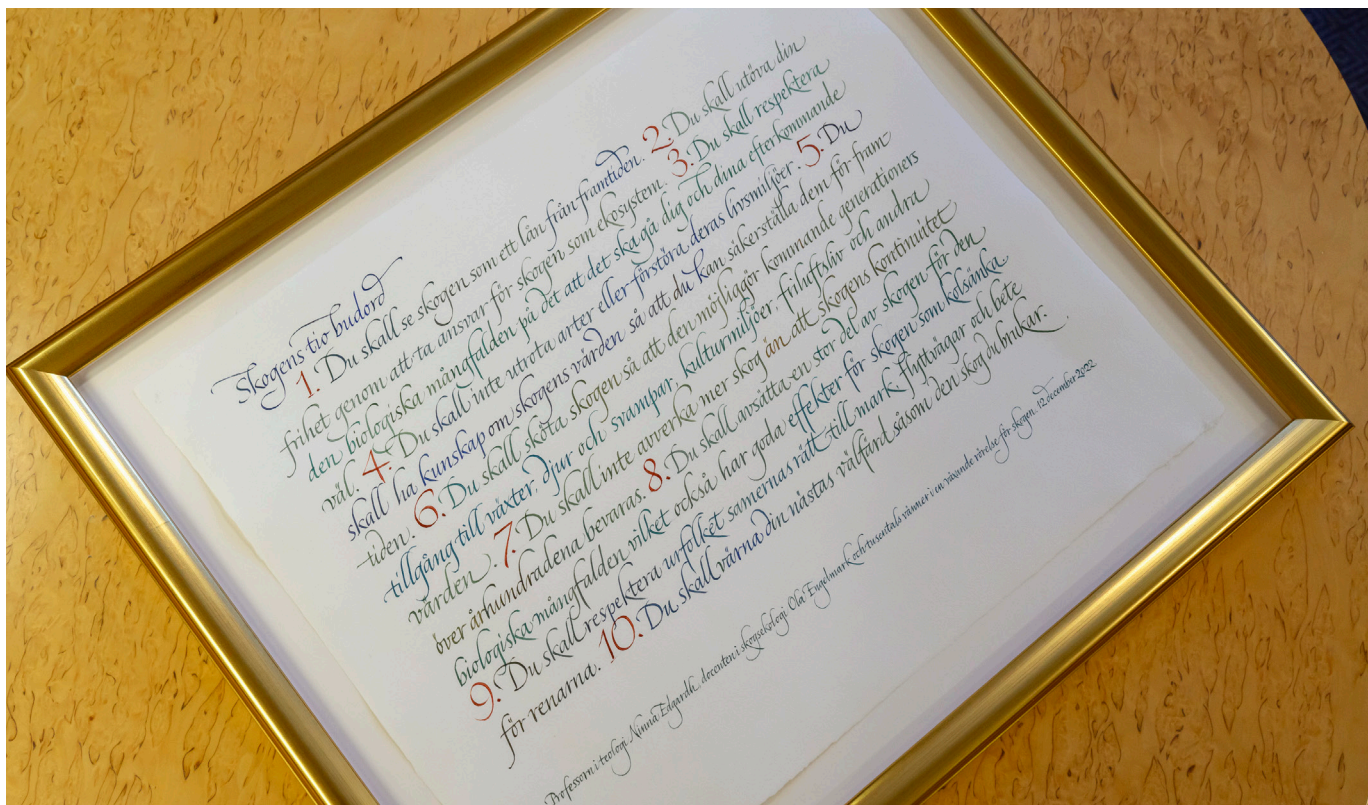 Skogens tio budord
1. Du skall se skogen som ett lån från framtiden. 2. Du skall utöva din
frihet genom att ta ansvar för skogen som ekosystem. 3. Du skall respektera
den biologiska mångfalden på det att det ska gå dig och dina efterkommande
väl. 4. Du skall inte utrota arter eller förstöra deras livsmiljöer. 5. Du
skall ha kunskap om skogens värden så att du kan säkerställa dem för fram-
tiden. 6. Du skall sköta skogen så att den möjliggör kommande generationers
tillgång till växter, djur och svampar, kulturmiljöer, friluftsliv och andra
värden. 7. Du skall inte avverka mer skog än att skogens kontinuitet
över århundradena bevaras. 8. Du skall avsätta en stor del av skogen för den
biologiska mångfalden vilket också har goda effekter för skogen som kolsänka.
9. Du skall respektera urfolket samernas rätt till mark, flyttvägar och bete
för renarna. 10. Du skall värna din nästas välfärd såsom den skog du brukar.
Professorn i teologi Ninna Edgardh, docenten i skogsekologi Ola Engelmark och tusentals vänner i en växande rörelse för skogen. 12 december 2022